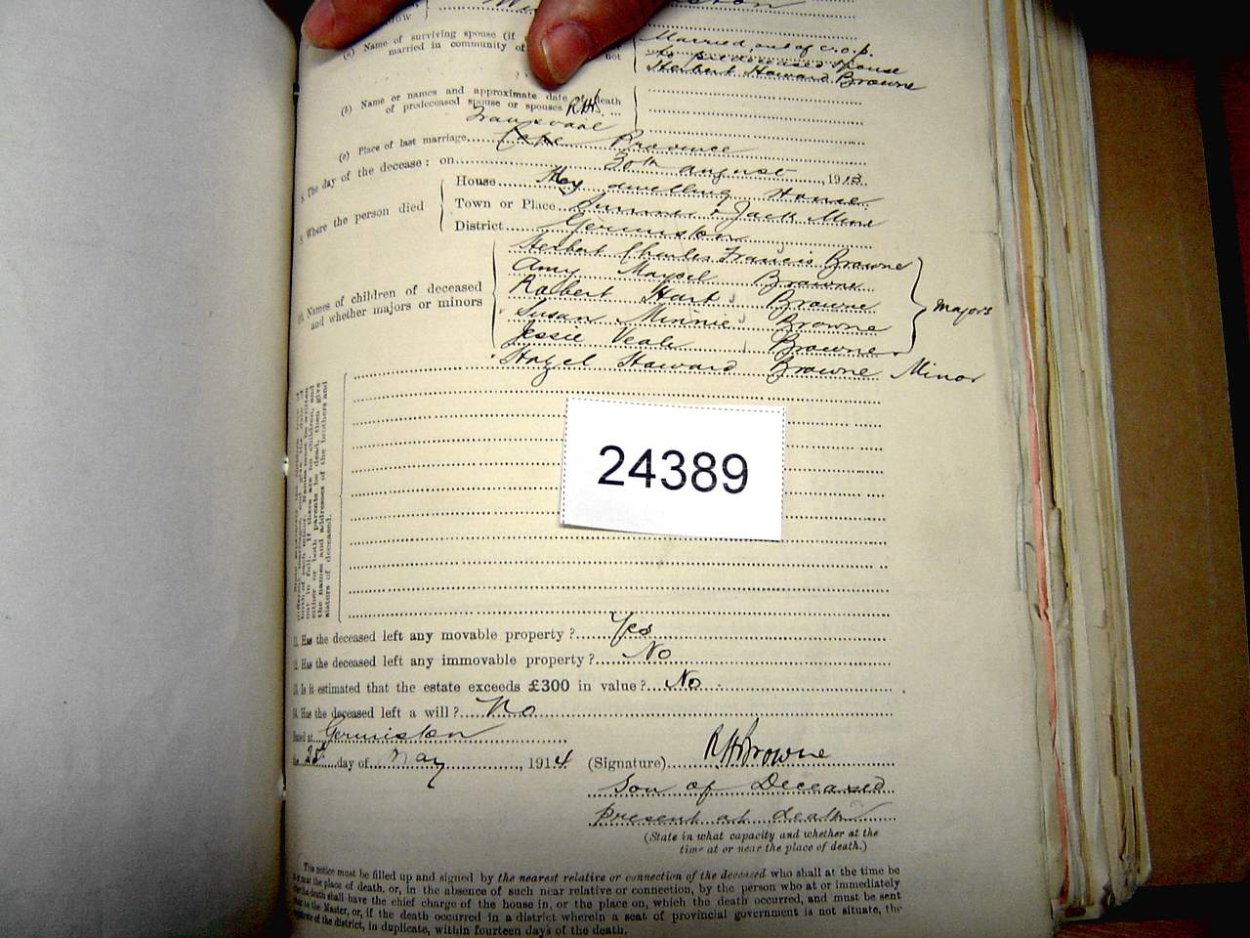 (a) Name of surviving spouse (if
married in community of
not
Married out of c.o.p.
to predeceased spouse
Herbert Howard Browne
(b) Name or names and approximate date death
of predeceased spouse or spouses R.H.B.
Transvaal
(c) Place of last marriage Cape Province
The day of the decease: on 30th August, 1913.
Where the person died
House My dwelling House
Town or Place Simmer & Jack Mine
District Germiston
Names of children of deceased
and whether majors or minors
Herbert Charles Francis Browne
Amy Browne
Robert Hart Browne
Susan Minnie Browne
Jessie Veale Browne
Majors
Hazel Howard Browne Minor
either or both parents be dead, then give
the names and addresses of the brothers and
sisters of deceased.
24389
11. Has the deceased left any movable property? Yes
12. Has the deceased left any immovable property? No
13. Is it estimated that the estate exceeds £300 in value? No
14. Has the deceased left a will? No
Dated at Germiston
day of May, 1914 (Signature) RHBrowne
Son of Deceased
Present at death
(State in what capacity and whether at the
time at or near the place of death.)
This notice must be filled up and signed by the nearest relative or connection of the deceased who shall at the time be
the place of death, or, in the absence of such near relative or connection, by the person who at or immediately
death shall have the chief charge of the house in, or the place on, which the death occurred, and must be sent
to the Master, or, if the death occurred in a district wherein a seat of provincial government is not situate, the
of the district, in duplicate, within fourteen days of the death.